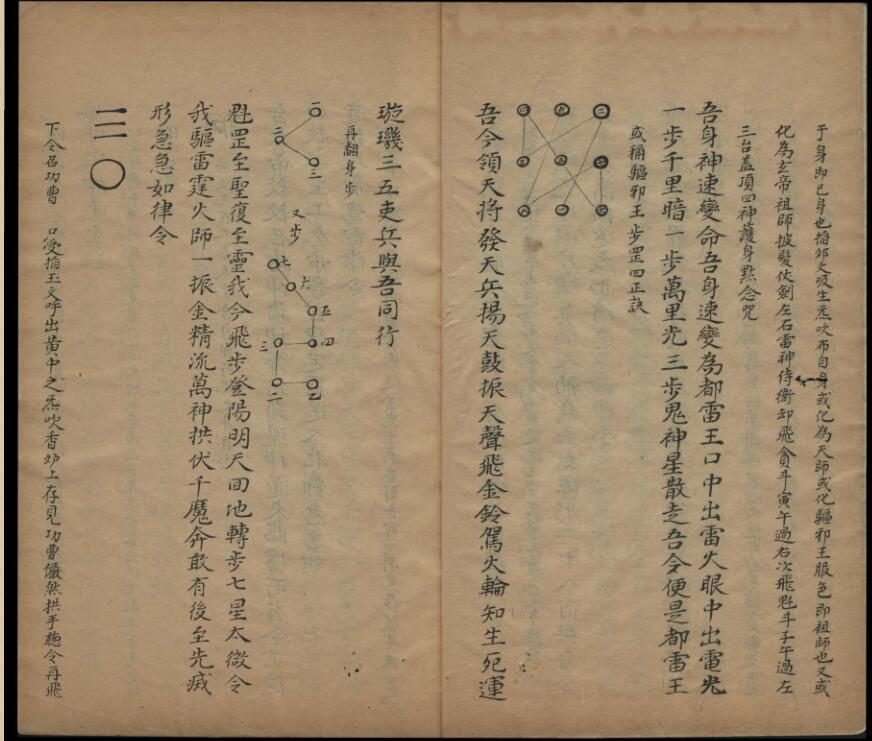 于身即已身也掐卯文吸生炁吹布自身或化為天師或化驅邪王服色即祖師也又或
化為玄帝祖師披髮仗劍左右雷神侍衛却飛貪斗寅午過右次飛魁斗子午過左
三台蓋頂四神護身點念咒
吾身神速變命吾身速變為都雷王口中出雷火眼中出電光
一步千里暗一步萬里光三步鬼神星散走吾今便是都雷王
或稱驅邪王步罡四正訣
二 七 六
九 五 一
四 三 八
吾今領天将發天兵揚天鼓振天聲飛金鈴駕火輪知生死運
璇璣三五吏兵與吾同行
再翻身步
一
二
三
又步
七
六
五
四
三
二
一
魁罡至聖復至靈我今飛步登陽明天回地轉步七星太微令
我驅雷霆火師一振金精流萬神拱伏千魔奔敢有後至先滅
形急急如律令
三二〇
下令召功曹 口受掐玉文呼出黄中之炁吹香炉上存見功曹儼然拱手聽令再飛